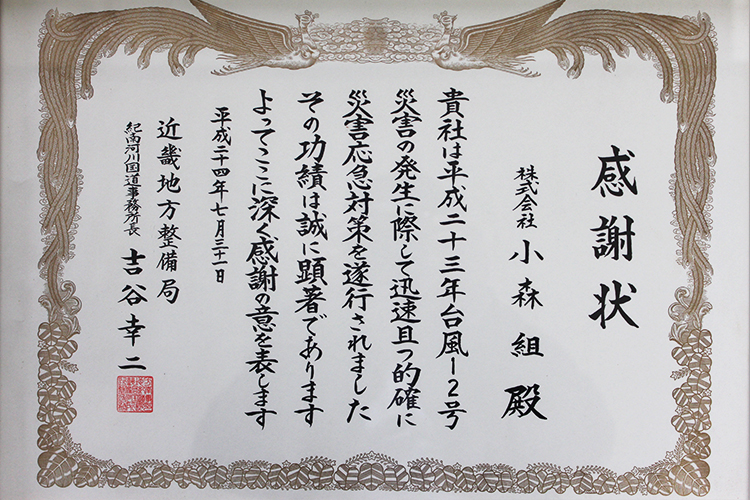 感謝状
株式会社 小森組 殿
貴社は平成二十三年台風12号
災害の発生に際して迅速且つ的確に
災害応急対策を遂行されました
その功績は誠に顕著であります
よってここに深く感謝の意を表します
平成二十四年七月三十一日
近畿地方整備局
紀南河川国道事務所長 吉谷幸二